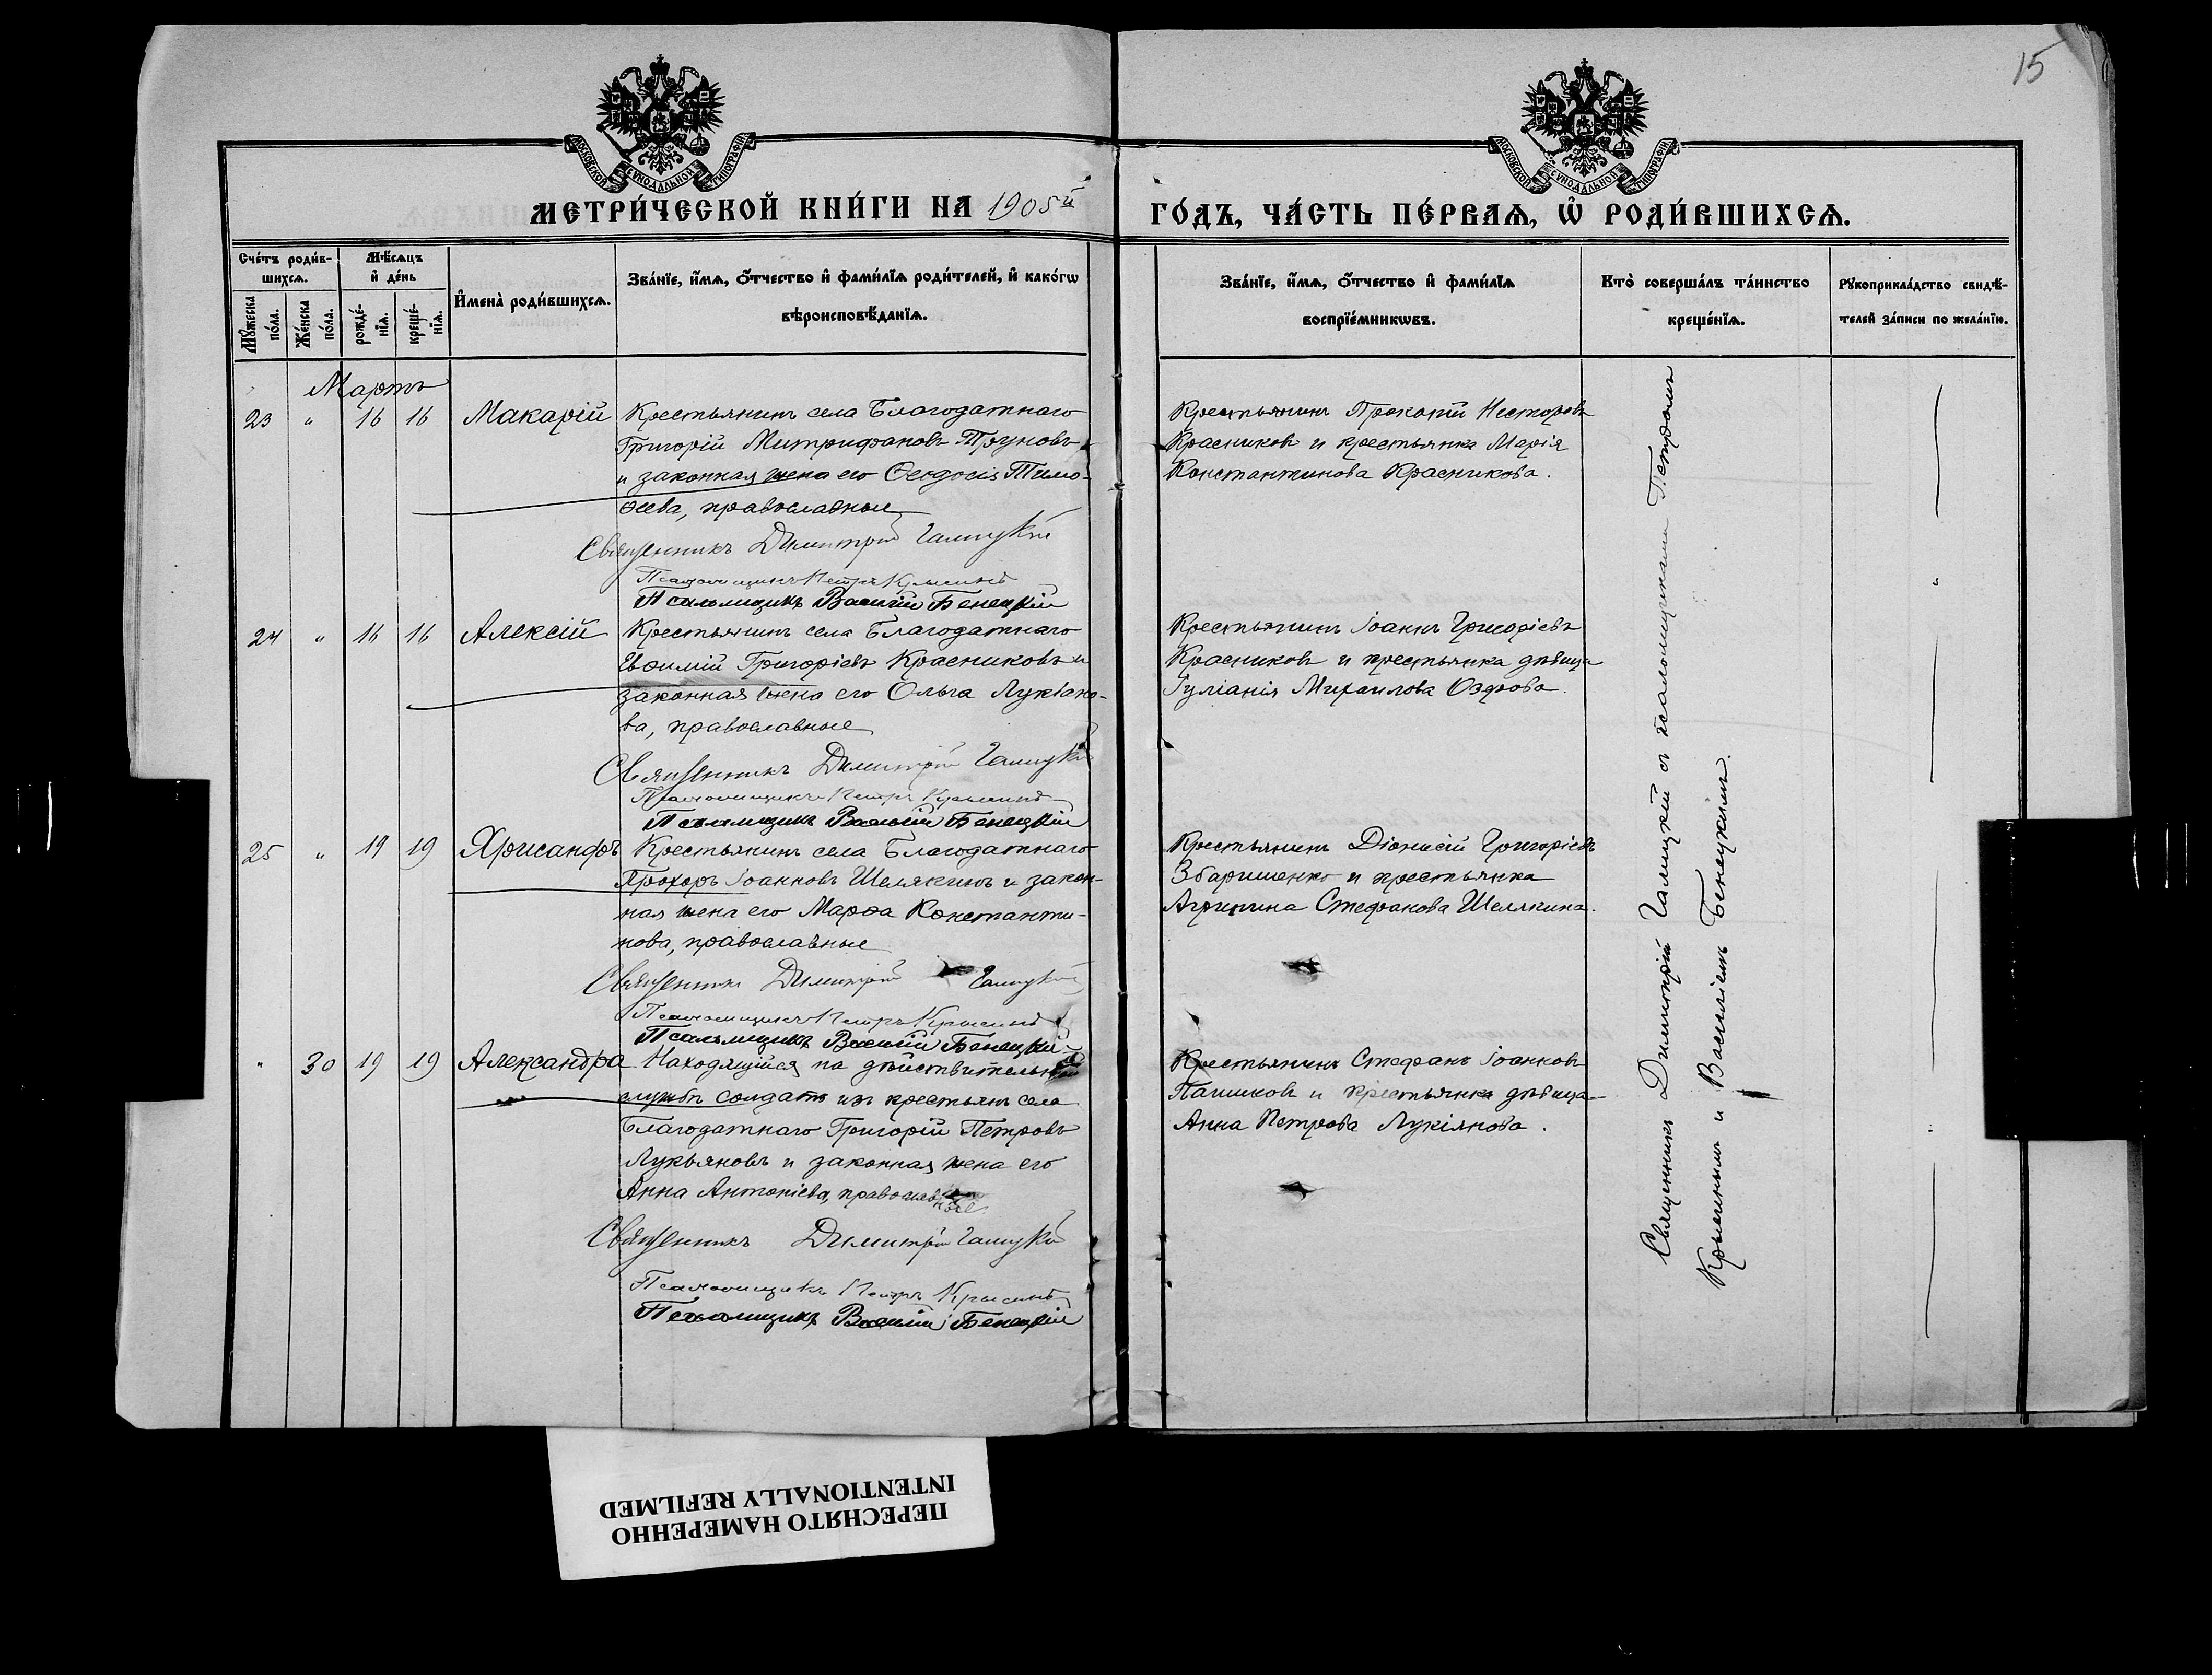 15
МОСКОВСКОЙ СУНОДАЛЬНОЙ ТИПОГРАФІИ
МОСКОВСКОЙ СУНОДАЛЬНОЙ ТИПОГРАФІИ
МЕТРИ́ЧЕСКОЙ КНИ́ГИ НА 1905й
ГО́ДЪ, ЧА́СТЬ ПЕ́РВАѦ, Ѡ҆ РОДИ́ВШИХСѦ.
Сче́тъ роди́в-
шихсѧ.
Мꙋ́жеска
по́ла.
Же́нска
по́ла.
Мѣ́сѧцъ
и҆ де́нь
рожде́-
нїѧ.
креще́-
нїѧ.
И҆мена̀ роди́вшихсѧ.
Зва́нїе, и҆́мѧ, ѻ҆́тчество и҆ фами́лїѧ роди́телей, и҆ како́гѡ
вѣроисповѣ́данїѧ.
Зва́нїе, и҆́мѧ, ѻ҆́тчество и҆ фами́лїѧ
воспрїе́мникѡвъ.
Кто̀ соверша́лъ та́инство
креще́нїѧ.
Рꙋкоприкла́дство свидѣ́-
телей за́писи по жела́нїю.
Мартъ
23 " 16 16 Макарій
Крестьянинъ села Благодатнаго
Григорій Митрифановъ Труновъ
и законная жена его Ѳеодосія Тимо-
ѳеева, православные
Священникъ Димитрій Галицкій
Псаломщикъ Петръ Крысинъ
Псаломщикъ Василій Бенецкій
Крестьянинъ Прокопій Несторовъ
Красниковъ и крестьянка Марія
Константинова Красникова.
24 " 16 16 Алексій
Крестьянинъ села Благодатнаго
Евѳимій Григорієвъ Красниковъ и
законная жена его Ольга Лукіано-
ва, православные
Священникъ Димитрій Галицкій
Псаломщикъ Петръ Крысинъ
Псаломщикъ Василій Бенецкій
Крестьянинъ Іоаннъ Григоріевъ
Красниковъ и крестьянка дѣвица
Іуліанія Михаилова
25 " 19 19 Хрисанфъ
Крестьянинъ села Благодатнаго
Прохоръ Іоанновъ Шелякинъ и закон-
ная жена его Марѳа Константи-
нова, православные
Священникъ Димитрій Галицкій
Псаломщикъ Петръ Крысинъ
Псаломщикъ Василій Бенецкій
Крестьянинъ Діонисій Григоріевъ
Збаришенко и крестьянка
Агрипина Стефанова Шелякина.
" 30 19 19 Александра
Находящійся на дѣйствительной
службѣ солдатъ изъ крестьянъ села
Благодатнаго Григорій Петровъ
Лукьяновъ и законная жена его
Анна Антоніева, православные
Священникъ Димитрій Галицкій
Псаломщикъ Петръ Крысинъ
Псаломщикъ Василій Бенецкій
Крестьянинъ Стефанъ Іоанновъ
Пашковъ и крестьянка дѣвица
Анна Петрова Лукіянова.
Священникъ Димитрій Галицкій съ псаломщиками Петромъ
Крысинымъ и Василіемъ Бенецкимъ.
ПЕРЕСНЯТО НАМЕРЕННО
INTENTIONALLY REFILMED